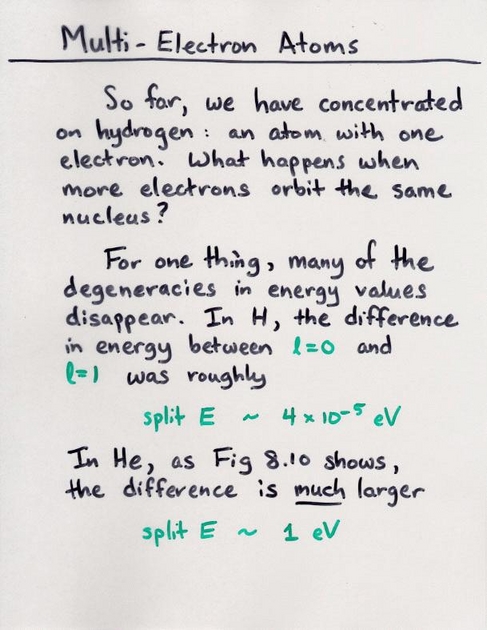 Multi-Electron Atoms
So far, we have concentrated
on hydrogen: an atom with one
electron. What happens when
more electrons orbit the same
nucleus?
For one thing, many of the
degeneracies in energy values
disappear. In H, the difference
in energy between l=0 and
l=1 was roughly
split E ~ 4 × 10⁻⁵ eV
In He, as Fig 8.10 shows,
the difference is much larger
split E ~ 1 eV